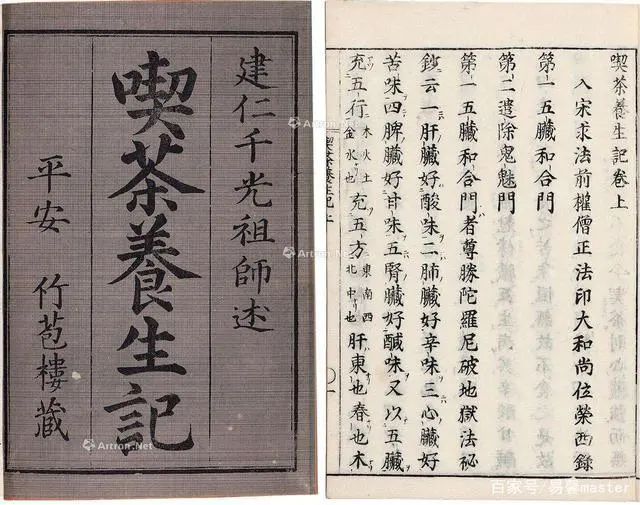 建仁千光祖師述
喫茶養生記
平安 竹苞樓蔵
喫茶養生記卷上
入宋求法前權僧正法印大和尚位榮西錄
第一五臟和合門
第二遣除鬼魅門
第一五臟和合門者尊勝陀羅尼破地獄法祕
鈔云一肝臟好酸味二肺臟好辛味三心臟好
苦味四脾臟好甘味五腎臟好鹹味又以五臟
充五行木火土金水也充五方東南西北中也肝東也春也木
喫茶養生記上
Artron.Net
Artron.Net
百家号/易客master